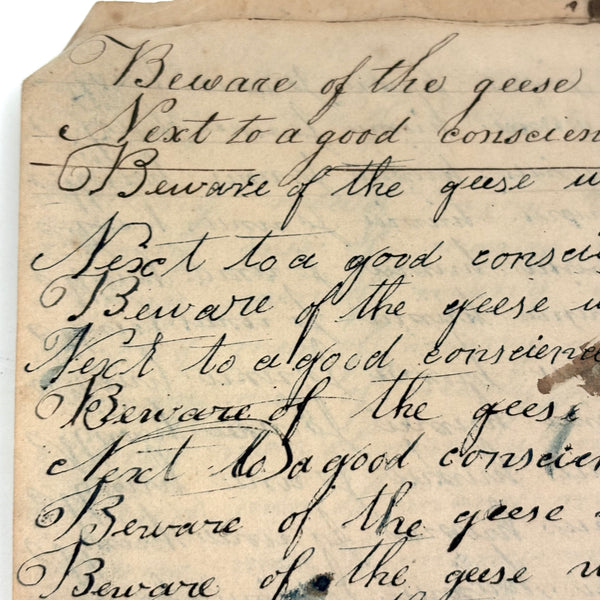 Beware of the geese
Next to a good conscien
Beware of the geese w
Next to a good consci
Beware of the geese w
Next to a good conscience
Beware of the geese
Next to a good conscien
Beware of the geese
Beware of the geese w